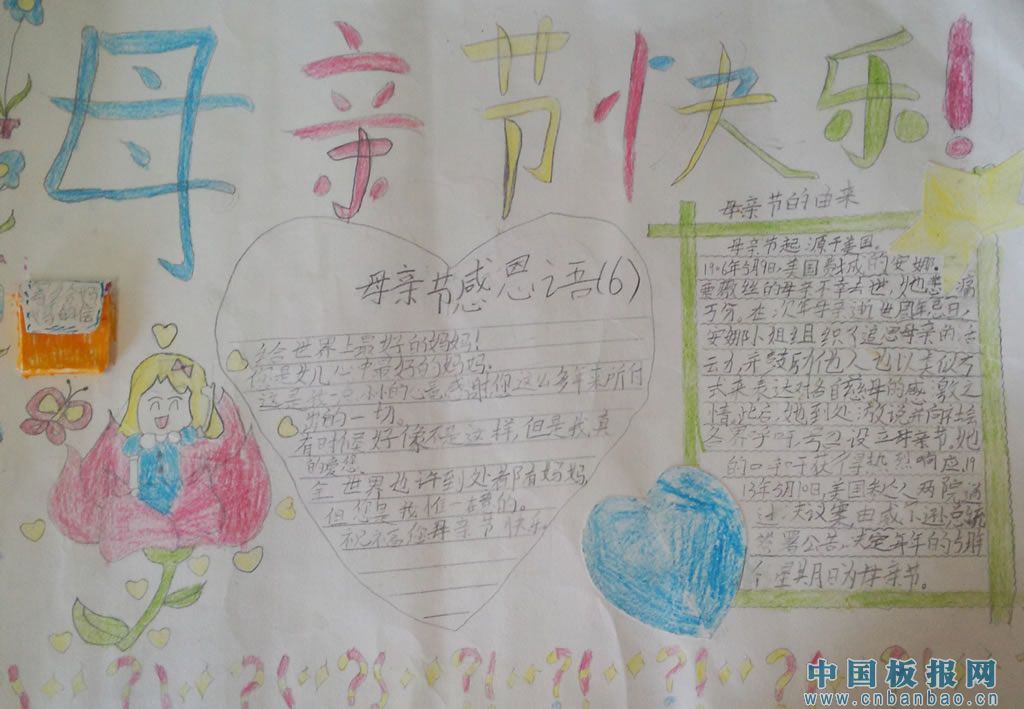 母亲节快乐!
母亲节感恩之语(6)
给世界上最好的妈妈!
你是女儿心中最好的妈妈。
这是我一点小的心意,感谢你这么多年来所付
出的一切。
有时候好像不是这样,但是我真
的爱您。
全世界也许到处都有妈妈,
但您是我唯一的。
祝您母亲节快乐
母亲节的由来
母亲节起源于美国。
1906年5月9日,美国费城的安娜。
贾薇丝的母亲不幸去世,她悲痛
万分。在次年母亲逝世周年忌日,
安娜小姐组织了追思母亲的活
动,并鼓励他人也以类似方
式来表达对各自慈母的感激之
情,此后,她到处游说并向社会
各界呼吁,号召设立母亲节,她
的呼吁获得热烈响应,19
13年5月10日,美国参众两院通
过决议案,由威尔逊总统
签署公告,决定每年的5月
个星期日为母亲节。
中国板报网
www.cnbanbao.cn